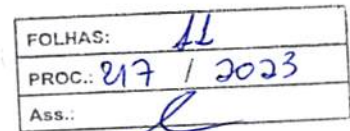 FOLHAS: 11
PROC.: 217 / 2023
Ass.: